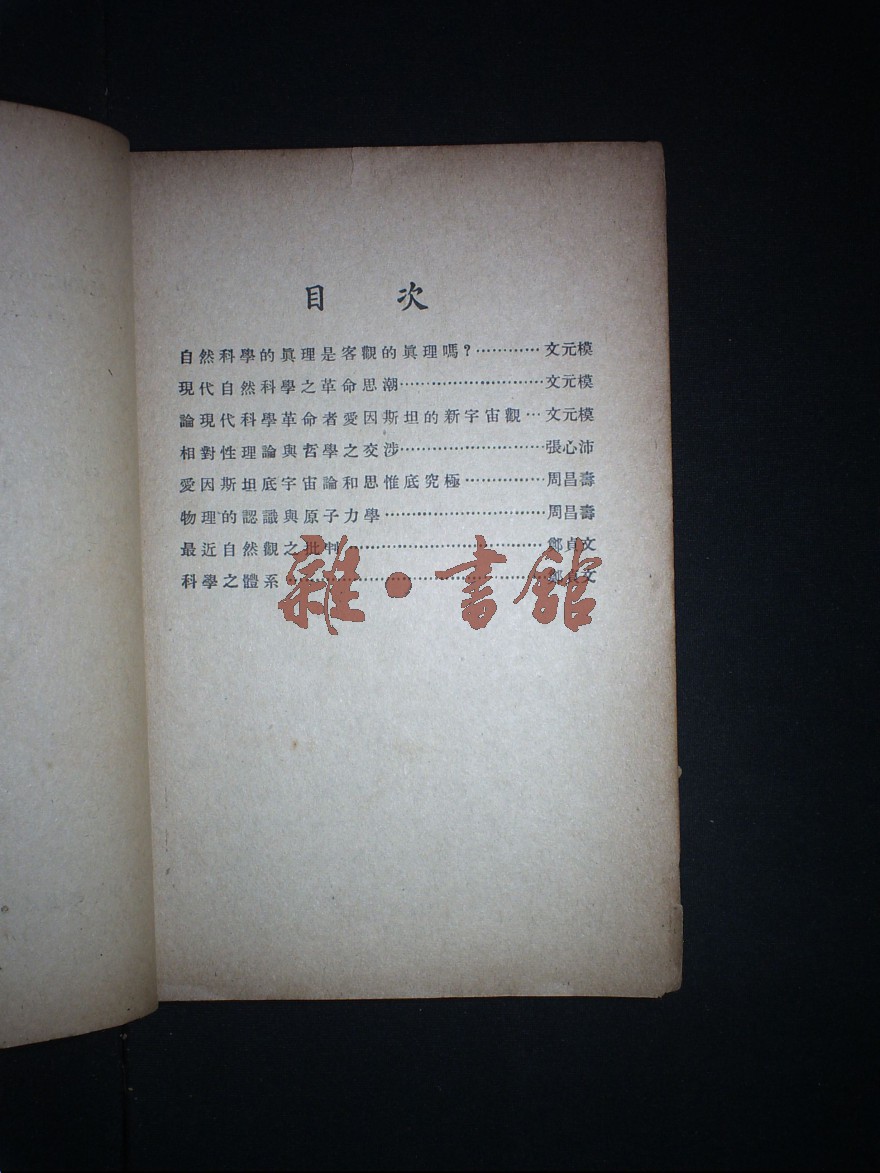 目 次
自然科學的眞理是客觀的眞理嗎？…………文元模
現代自然科學之革命思潮………………………文元模
論現代科學革命者愛因斯坦的新宇宙觀…文元模
相對性理論與哲學之交涉………………………張心沛
愛因斯坦底宇宙論和思惟底究極……………周昌壽
物理的認識與原子力學…………………………周昌壽
最近自然觀之批判…………………………………鄭貞文
科學之體系……………………………………………鄭貞文
雜·書館